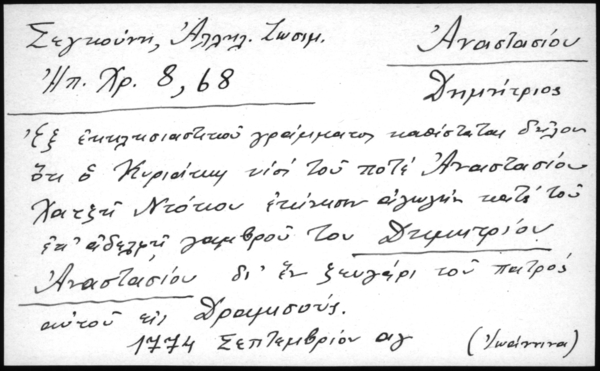 Σεγκούνη, Ἀλληλ. Ζωσιμ.
Ἀναστασίου
Ἠπ. Χρ. 8, 68
Δημήτριος
Ἐξ ἐκκλησιαστικοῦ γράμματος καθίσταται δῆλον
ὅτι ὁ Κυριάκης υἱός τοῦ ποτέ Ἀναστασίου
Χατζῆ Ντόκου ἐκίνησεν ἀγωγήν κατά τοῦ
ἐπ' ἀδελφῇ γαμβροῦ του Δημητρίου
Ἀναστασίου δι' ἕν ζευγάρι τοῦ πατρός
αὐτοῦ εἰς Δραμισούς.
1774 Σεπτεμβρίου αῃ
(Ἰωάννινα)